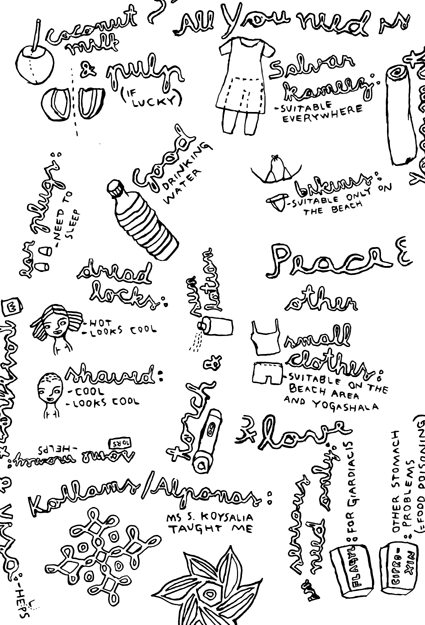 All You need is
coconut
milk
& pulp
(IF
LUCKY)
Salvar
kameez:
-SUITABLE
EVERYWHERE
Good
DRINKING
WATER
ear plugs:
-NEED TO
SLEEP
bikinis:
-SUITABLE ONLY ON
THE BEACH
Peace &
dread
locks:
-HOT
-LOOKS COOL
sun
lotion
&
torch
other
small
clothes:
-SUITABLE ON THE
BEACH AREA
AND YOGASHALA
shaved:
-COOL
-LOOKS COOL
& love
-HELPS
10RS
Kollams/Alponas:
MS S. KOYSALIA
TAUGHT ME
need only:
FLAGYL
: FOR GIARDIACIS
CIPRO-
XIN
OTHER STOMACH
: PROBLEMS
(=FOOD POISONING)
:-HELPS